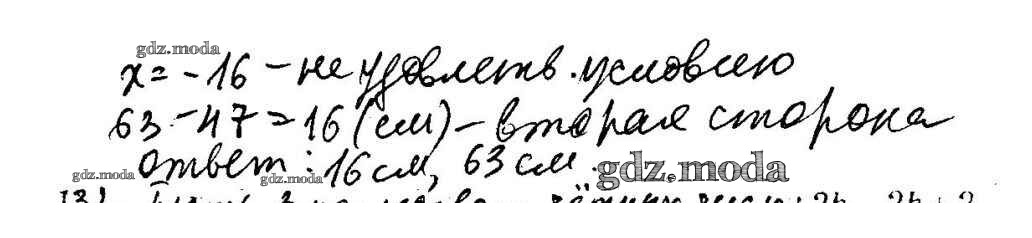 gdz.moda
x = -16 - не удовлетв. условию
63 - 47 = 16 (см) - вторая сторона
gdz.moda Ответ: 16 см, 63 см. gdz.moda
gdz.moda